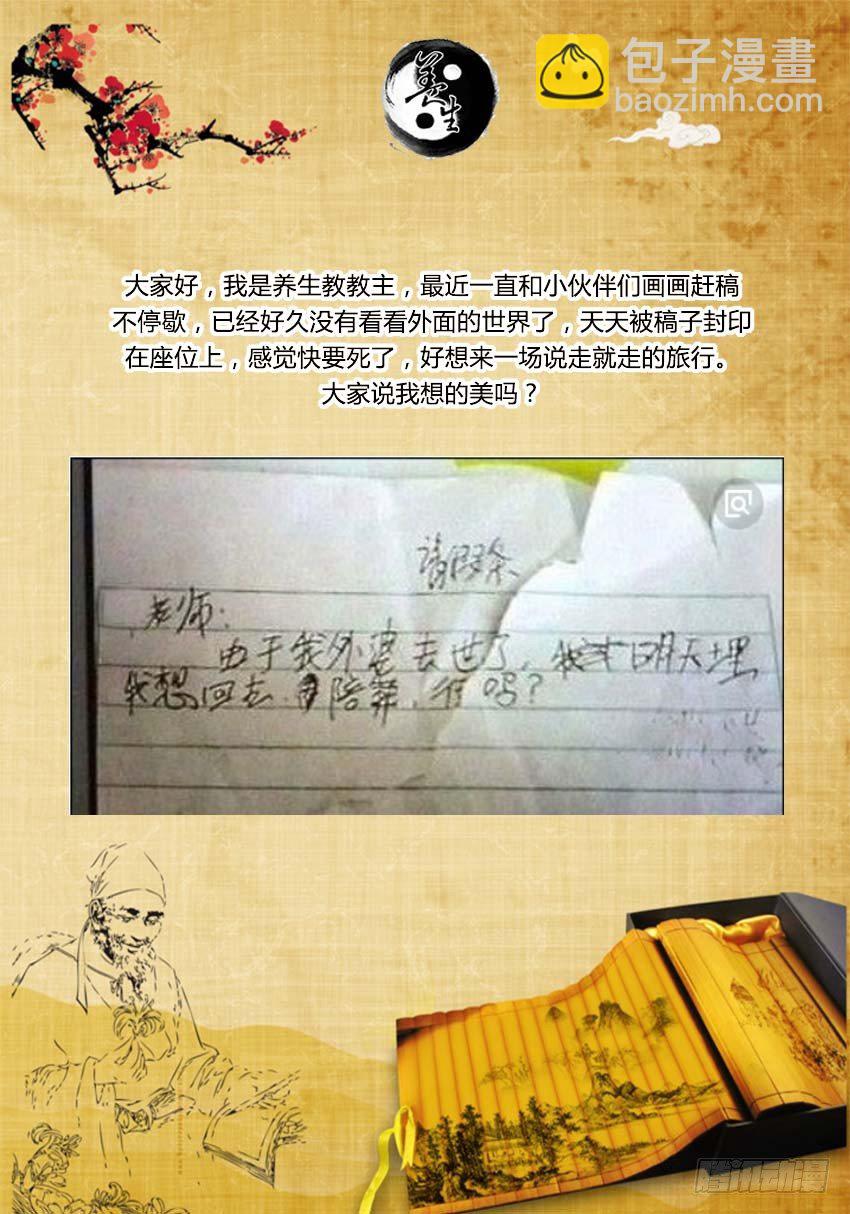 养生
包子漫畫
baozimh.com
大家好，我是养生教教主，最近一直和小伙伴们画画赶稿
不停歇，已经好久没有看看外面的世界了，天天被稿子封印
在座位上，感觉快要死了，好想来一场说走就走的旅行。
大家说我想的美吗？
请假条
老师：
由于我外婆去世了，我 明天埋
我想回去 陪葬，行吗？
腾讯动漫